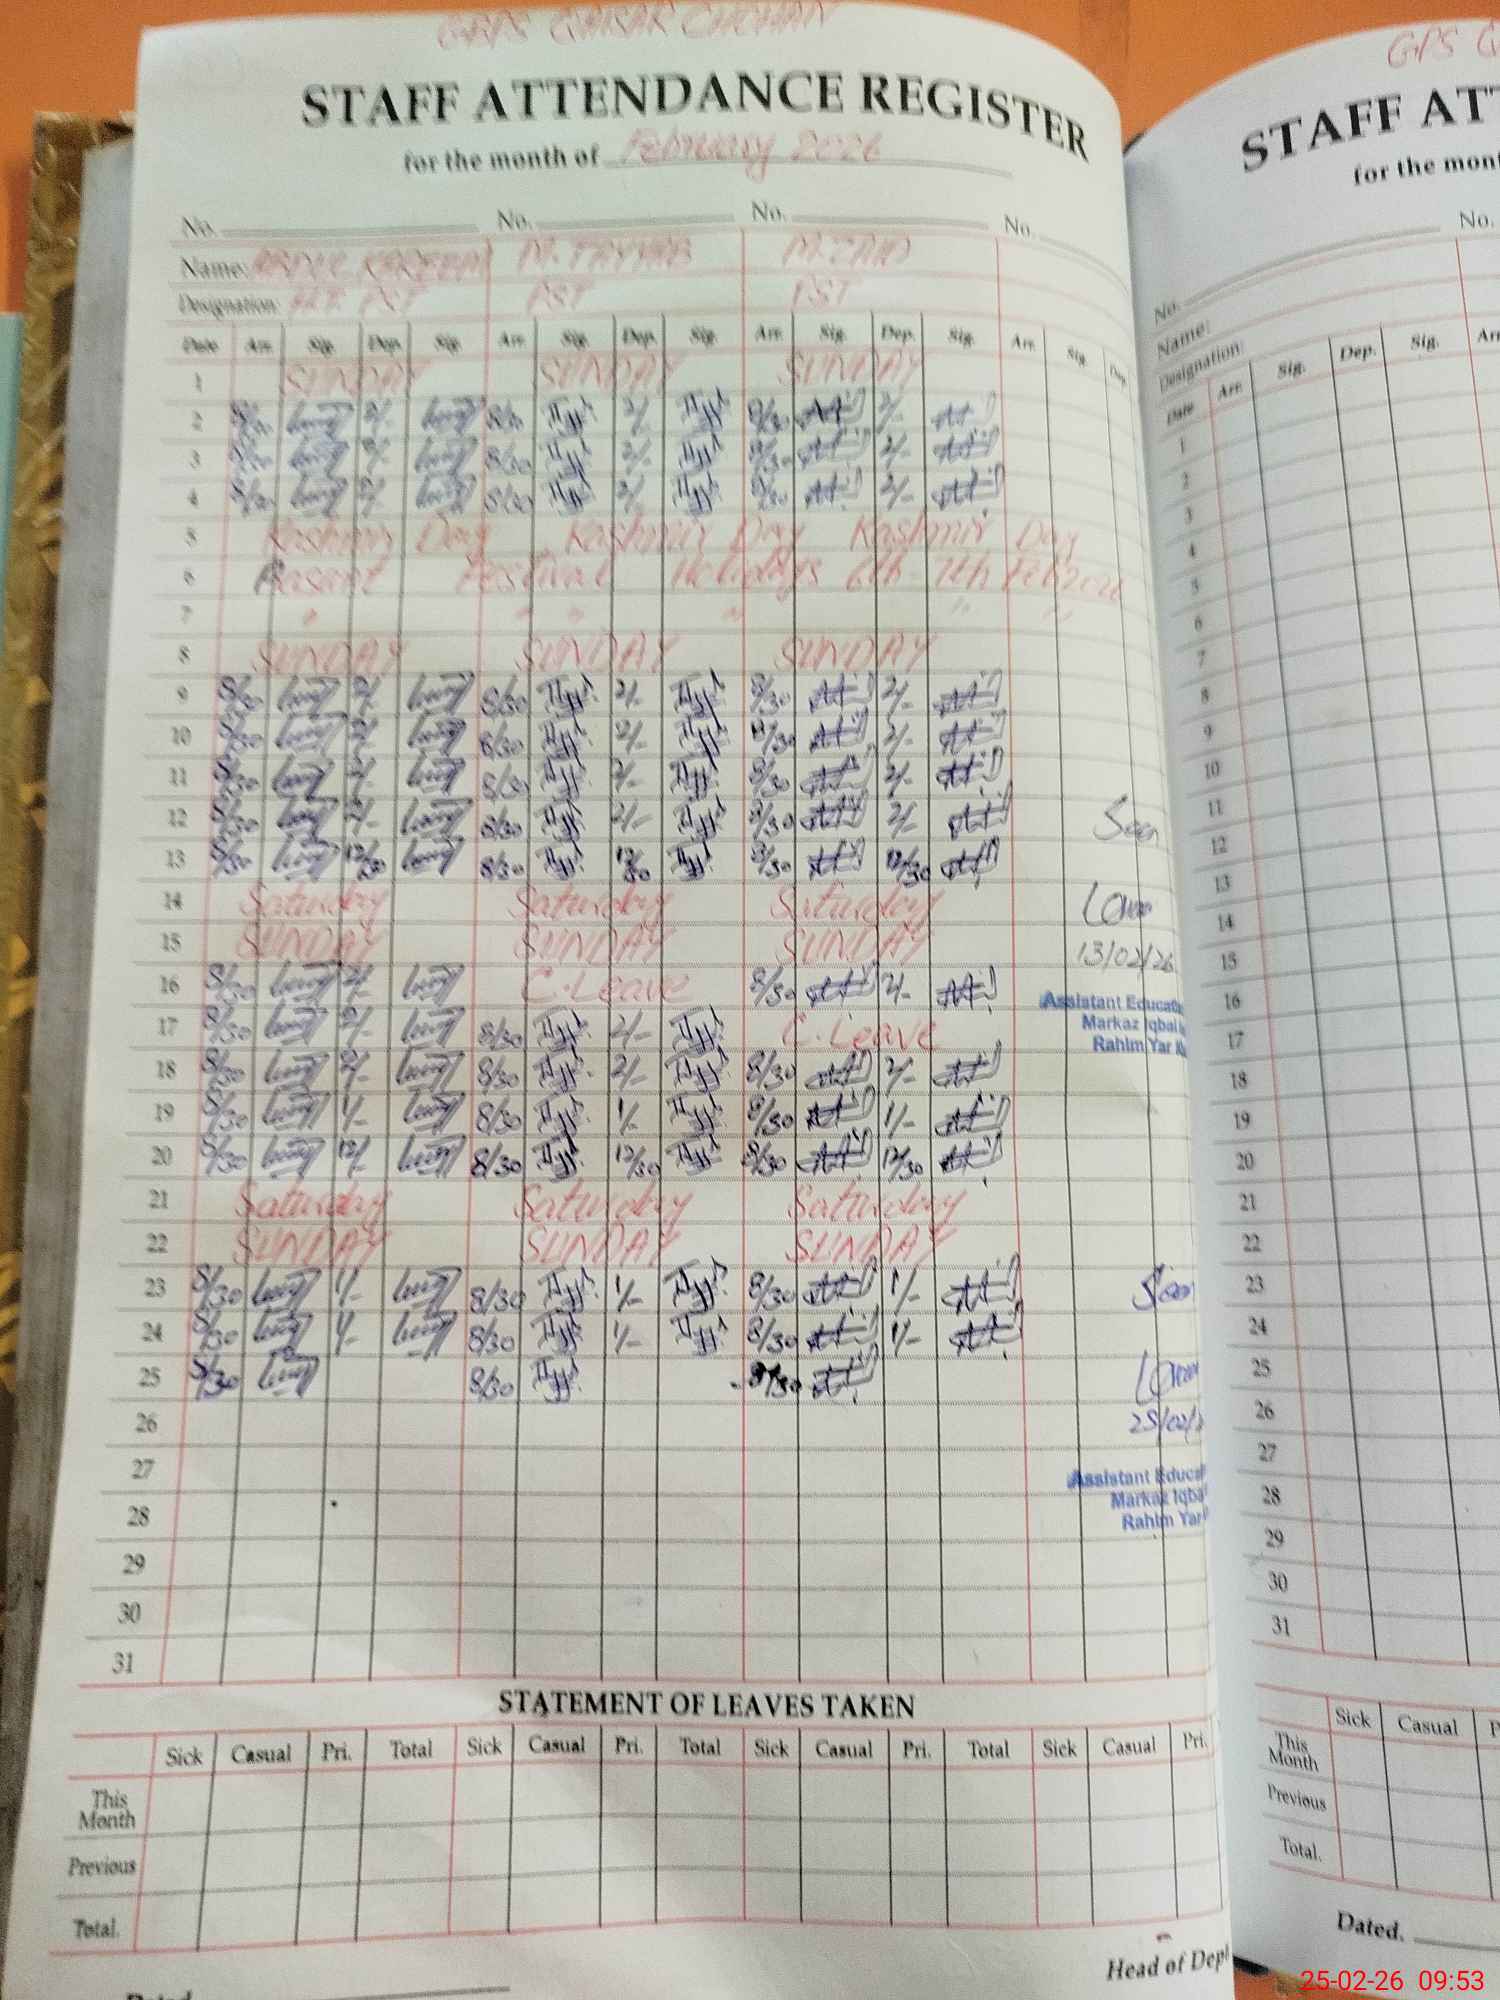 STAFF ATTENDANCE REGISTER
for the month of February 2026
No. No. No. No.
Name: ABDUL KAREEM M. TAYYAB M. ZAID
Designation: PST PST PST
Date Arr. Sig. Dep. Sig. Arr. Sig. Dep. Sig. Arr. Sig. Dep. Sig. Arr. Sig. Dep.
1 SUNDAY SUNDAY SUNDAY
2 8/30 2/- 8/30 2/- 8/30 2/-
3 8/30 2/- 8/30 2/- 8/30 2/-
4 8/30 2/- 8/30 2/- 8/30 2/-
5 Kashmir Day Kashmir Day Kashmir Day
6 Basant Festival Holidays 6th - 7th Feb 2026
7 " " " " " "
8 SUNDAY SUNDAY SUNDAY
9 8/30 2/- 8/30 2/- 8/30 2/-
10 8/30 2/- 8/30 2/- 8/30 2/-
11 8/30 2/- 8/30 2/- 8/30 2/-
12 8/30 2/- 8/30 2/- 8/30 2/- Seen
13 8/30 12/30 8/30 12/30 8/30 12/30
14 Saturday Saturday Saturday
15 SUNDAY SUNDAY SUNDAY 13/02/26
16 8/30 2/- C. Leave 8/30 2/-
Assistant Educat
Markaz Iqbal
Rahim Yar
17 8/30 2/- 8/30 2/- C. Leave
18 8/30 2/- 8/30 2/- 8/30 2/-
19 8/30 1/- 8/30 1/- 8/30 1/-
20 8/30 12/- 8/30 12/30 8/30 12/30
21 Saturday Saturday Saturday
22 SUNDAY SUNDAY SUNDAY
23 8/30 1/- 8/30 1/- 8/30 1/- Seen
24 8/30 1/- 8/30 1/- 8/30 1/-
25 8/30 8/30 8/30
26 25/02/
27
Assistant Educat
Markaz Iqba
Rahim Yar
28
29
30
31
STATEMENT OF LEAVES TAKEN
Sick Casual Pri. Total Sick Casual Pri. Total Sick Casual Pri. Total Sick Casual Pri.
This
Month
Previous
Total.
Head of Dept
GPS G
STAFF AT
for the mont
No. No.
Name:
Designation:
Date Arr. Sig. Dep. Sig. Arr
1
2
3
4
5
6
7
8
9
10
11
12
13
14
15
16
17
18
19
20
21
22
23
24
25
26
27
28
29
30
31
Sick Casual P
This
Month
Previous
Total.
Dated.
25-02-26 09:53